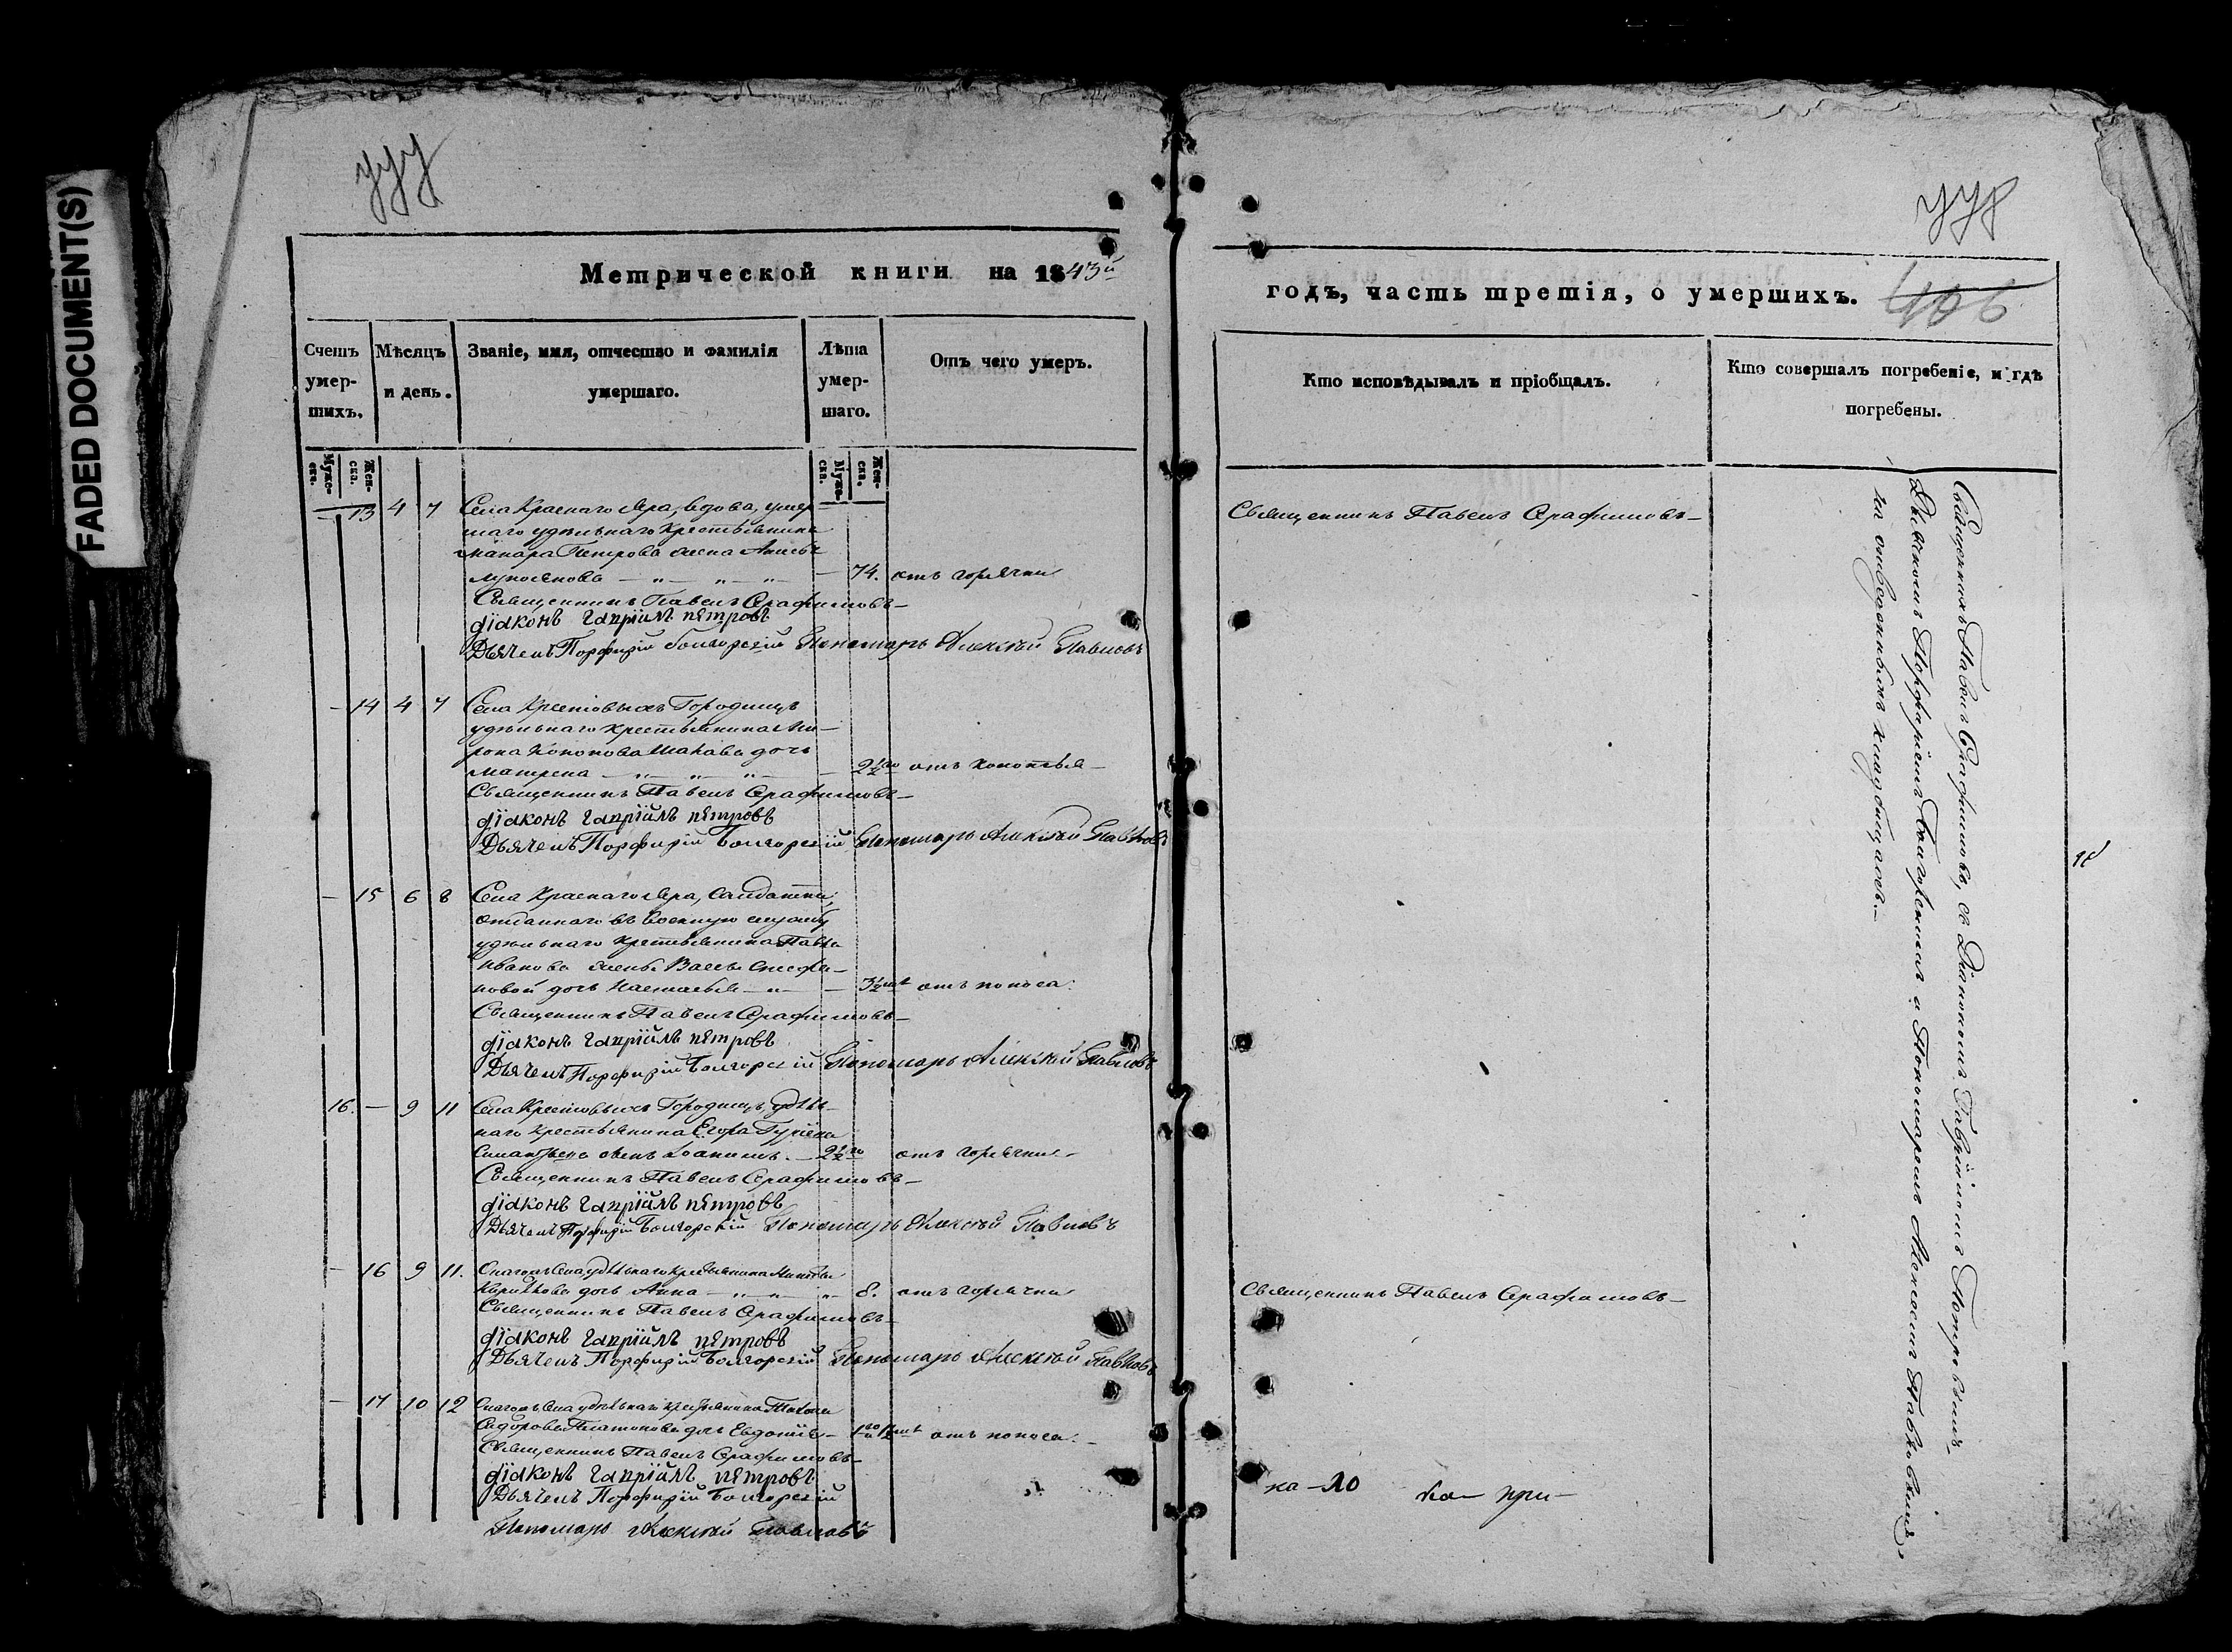 FADED DOCUMENT(S)
Метрической книги на 1843й
Счетъ умер-шихъ.
Мѣсяцъ и день.
Званіе, имя, отчество и фамилія умершаго.
Лѣта умер-шаго.
Отъ чего умеръ.
Муже-ска.
Жен-ска.
Муже-ска.
Жен-ска.
— 13 4 7 Села Краснаго Яра, вдова, умер-
шаго удѣльнаго крестьянина
Макара Петрова жена
— " — " — " — 74. отъ горячки
Священникъ Павелъ Серафимовъ
діаконъ Гавріилъ Петровъ
Дьячекъ Порфирій Болгорскій Пономарь Алексѣй Павловъ
— 14 4 7 Села Крестовыхъ Городищъ
удѣльнаго крестьянина Ми-
рона Кононова дочь
Матрена — " — " — " — 2½ го отъ
Священникъ Павелъ Серафимовъ
діаконъ Гавріилъ Петровъ
Дьячекъ Порфирій Болгорскій Пономарь Алексѣй Павловъ
— 15 6 8 Села Краснаго Яра, солдатки,
отданнаго въ военную службу
удѣльнаго крестьянина Павла
Иванова жены Васъ Стефа-
новой дочь Настасья — " — 3½ отъ поноса.
Священникъ Павелъ Серафимовъ
діаконъ Гавріилъ Петровъ
Дьячекъ Порфирій Болгорскій Пономарь Алексѣй Павловъ
16. — 9 11 Села Крестовыхъ Городищъ, удѣль-
наго крестьянина Егора Гурьева
сынъ Іоакимъ. — 2½ го отъ горячки
Священникъ Павелъ Серафимовъ
діаконъ Гавріилъ Петровъ
Дьячекъ Порфирій Болгорскій Пономарь Алексѣй Павловъ
— 16 9 11. Онагожъ села, удѣльнаго крестьянина Никиты
дочь Анна — " — " — " 8. отъ горячки
Священникъ Павелъ Серафимовъ
діаконъ Гавріилъ Петровъ
Дьячекъ Порфирій Болгорскій Пономарь Алексѣй Павловъ
— 17 10 12 Онагожъ села удѣльнаго крестьянина
Сидорова Платонова дочь Евдокія — отъ поноса.
Священникъ Павелъ Серафимовъ
діаконъ Гавріилъ Петровъ
Дьячекъ Порфирій Болгорскій
Пономарь Алексѣй Павловъ
годъ, часть третія, о умершихъ.
406
Кто исповѣдывалъ и пріобщалъ.
Кто совершалъ погребеніе, и гдѣ погребены.
Священникъ Павелъ Серафимовъ
Священникъ Павелъ Серафимовъ
Священникъ Павелъ Серафимовъ, съ Діакономъ Гавріиломъ Петровымъ
Дьячкомъ Порфиріемъ Болгорскимъ и Пономаремъ Алексѣемъ Павловымъ,
на отведенномъ кладбищахъ.
ка — 10 ка — при —